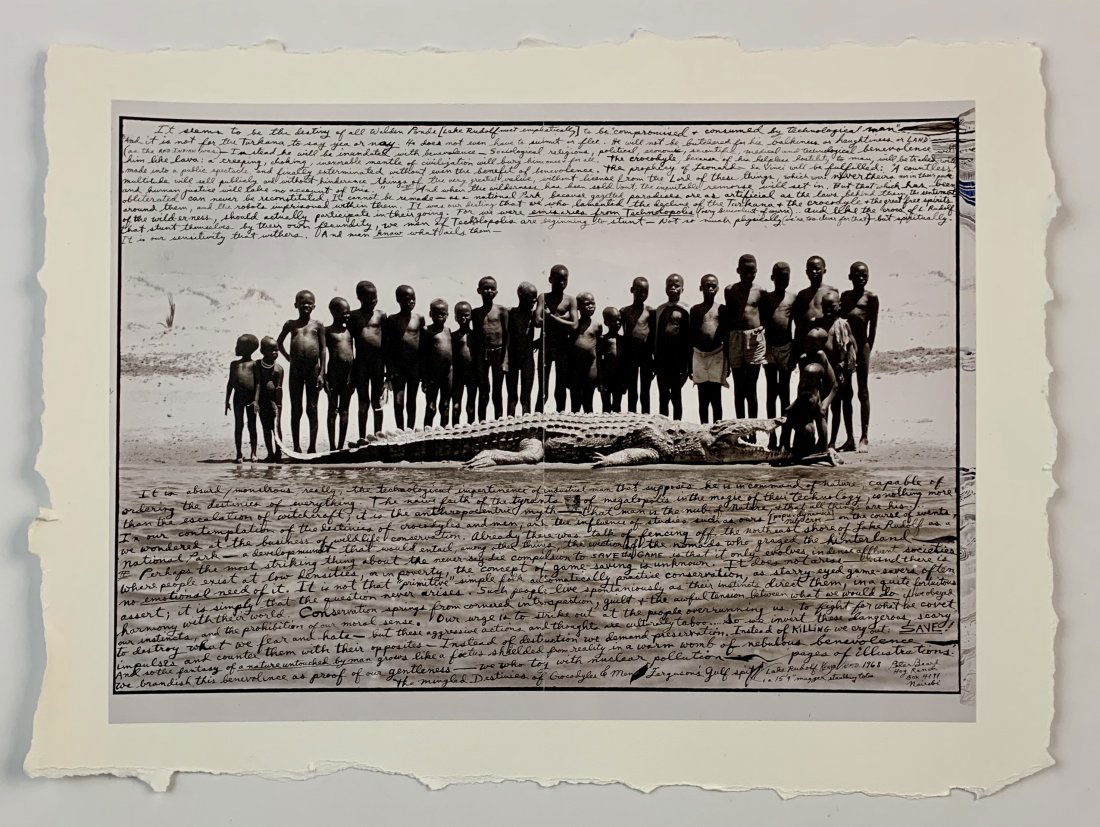 It seems to be the destiny of all Walden Ponds [Lake Rudolf most emphatically] to be "compromised & consumed by technological man"
"And it is not for the Turkana to say yea or nay. He does not even have to submit or flee. He will not be butchered for his balkiness or haughtiness or LAND
(as the AM INDIAN was) - Instead he will be inundated with benevolence - Sociological, religious, political, economic, scientific, medical and technological benevolence
him like lava: a creeping, choking inexorable mantle of civilization will bury him once for all. The crocodyle, because of his helpless hostility to man, will be
made into a public spectacle and finally exterminated without even the benefit of benevolence. The prophecy of Leonardo da Vinci will be fulfilled: 'A countless
multitude will sell publicly and without hindrance things of the very greatest value, without license from the Lord of these things, which were never theirs nor in their power
and human justice will take no account of this.'" And when the wilderness has been sold out, the inevitable remorse will set in. But that which has been
obliterated can never be reconstituted. It cannot be remade - as a national Park, because gazetted paradises are as artificial as the laws behind them, the sentries
around them, and the robots imprisoned within them. It was our destiny that we who lamented the decline of the Turkana & the crocodyle & the great free spirits
of the wilderness, should actually participate in their going. For we were emissaries from Technopolis (very succulent of course). And like the crocs of L Rudolf
"that stunt themselves by their own fecundity, we men of Technopolis are beginning to stunt - Not so much physically - but spiritually
It is our sensitivity that withers. And man know what ails them -
It is absurd/monstrous really, the technological impertinence of industrial man that supposes he is in command of nature capable of
ordering the destinies of everything. The naive faith of the tyrants of megalopolis in the magic of their technology is nothing more
than the escalation of witchcraft; it is the anthropocentric myth that man is the nub of Nature, & that all things are his.
In our contemplation of the destinies of crocodyles and men, and the influence of studies such as ours [popu-dynamics] on the course of events
we wondered at the business of wildlife conservation. Already there was talk of fencing off the northeast shore of Lake Rudolf as a
National Park - a development that would entail, among other things, the eviction of the nomads who grazed the hinterland
Perhaps the most striking thing about the never-say-die compulsion to SAVE THE GAME is that it only evolves in dense affluent societies
where people exist at low densities, or in poverty, the concept of game-saving is unknown. It does not exist - and there is
no emotional need of it. It is not that "primitive" simple folk automatically practice conservation, as starry-eyed game-savers often
assert; it is simply that the question never arises. Such people live spontaneously, as their instincts direct them, in a quite fortuitous
harmony with their world. Conservation springs from cornered introspection, guilt & the awful tension between what we would do if we obeyed
our instincts, and the prohibition of our moral sense. Our urge is to strike out at the people overrunning us, to fight for what we covet
to destroy what we fear and hate - but these aggressive actions and thoughts are culturally taboo... So we invert these dangerous, scary
impulses and counter them with their opposites - Instead of destruction we demand preservation. Instead of KILLING we cry out: SAVE!
And so the fantasy of a nature untouched by man grows like a foetus shielded from reality in a warm womb of nebulous benevolence.
we brandish this benevolence as proof of our gentleness - we who toy with nuclear pollution pages of illustrations:
The mingled Destinies of Crocodyles & Men Fergusons Gulf spit
Lake Rudolf Expl 1968
a 15'9" mugger
Peter Beard
Hog Ranch
Box 4191
Nairobi